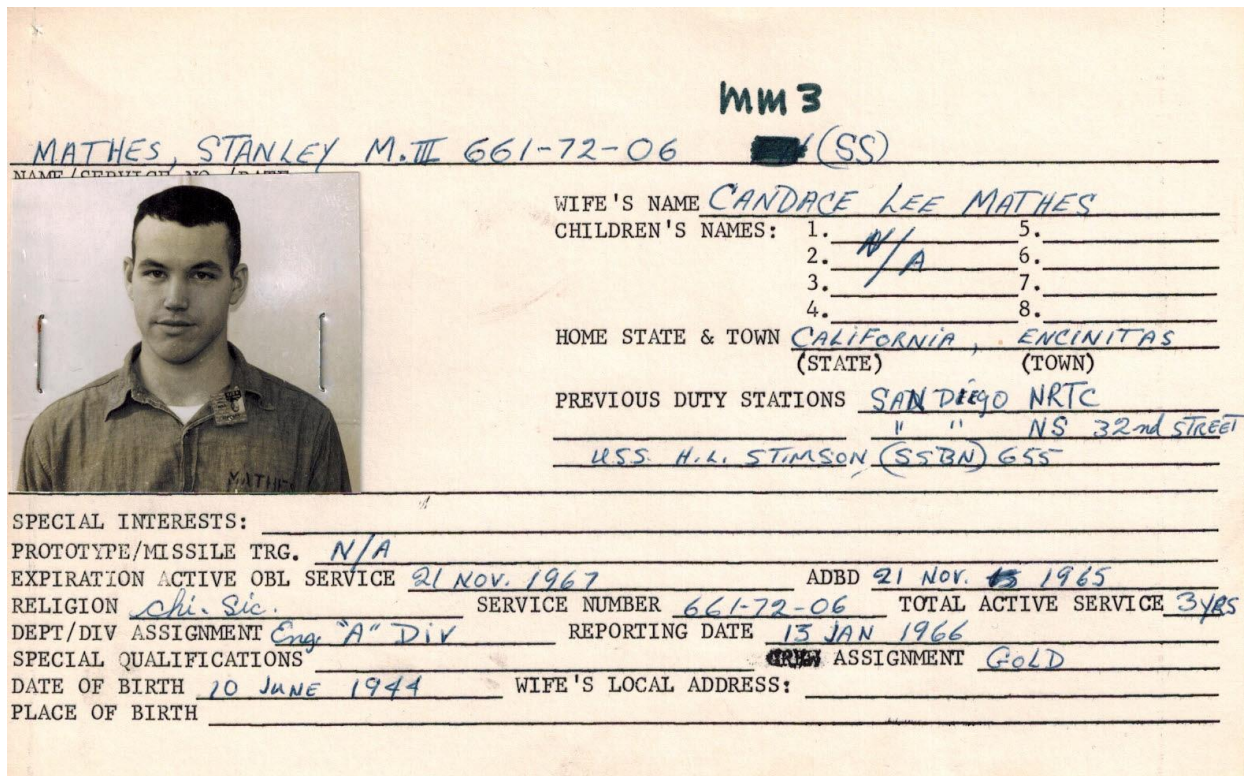 MM3
MATHES, STANLEY M. III 661-72-06 (SS)
NAME/SERVICE NO./RATE
WIFE'S NAME CANDACE LEE MATHES
CHILDREN'S NAMES: 1. N/A 5.
2. 6.
3. 7.
4. 8.
HOME STATE & TOWN CALIFORNIA, ENCINITAS
(STATE) (TOWN)
PREVIOUS DUTY STATIONS SAN DIEGO NRTC
" " NS 32nd STREET
USS. H.L. STIMSON (SSBN) 655
MATHE
SPECIAL INTERESTS:
PROTOTYPE/MISSILE TRG. N/A
EXPIRATION ACTIVE OBL SERVICE 21 NOV. 1967 ADBD 21 NOV. 1965
RELIGION Chi. Sic. SERVICE NUMBER 661-72-06 TOTAL ACTIVE SERVICE 3 YRS
DEPT/DIV ASSIGNMENT Eng. "A" Div REPORTING DATE 13 JAN 1966
SPECIAL QUALIFICATIONS ASSIGNMENT GOLD
DATE OF BIRTH 10 JUNE 1944 WIFE'S LOCAL ADDRESS:
PLACE OF BIRTH